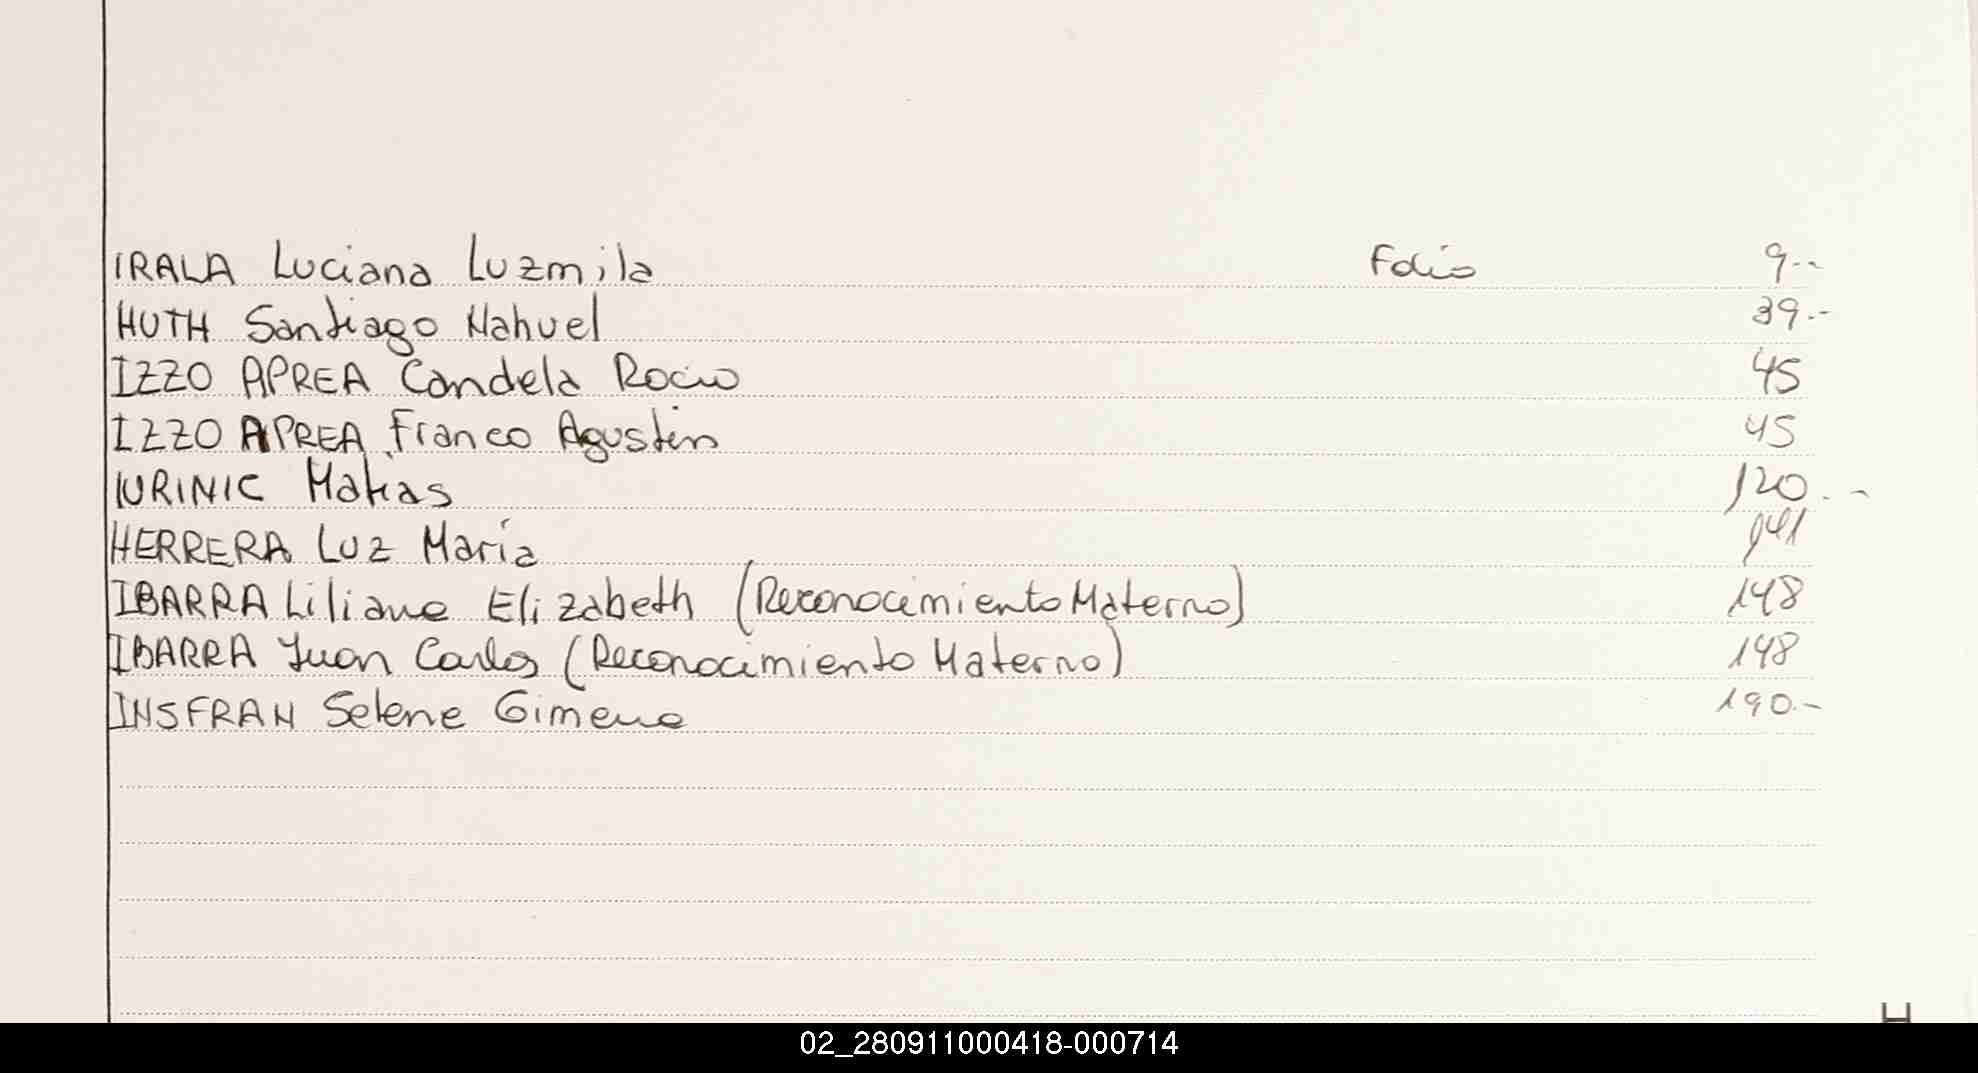 IRALA Luciana Luzmila Folio 9.--
HUTH Santiago Nahuel 39.--
IZZO APREA Candela Rocio 45
IZZO APREA Franco Agustin 45
IURINIC Matias 120.--
HERRERA Luz María 141
IBARRA Liliana Elizabeth (Reconocimiento Materno) 148
IBARRA Juan Carlos (Reconocimiento Materno) 148
INSFRAN Selene Gimena 190.--
H
02_280911000418-000714